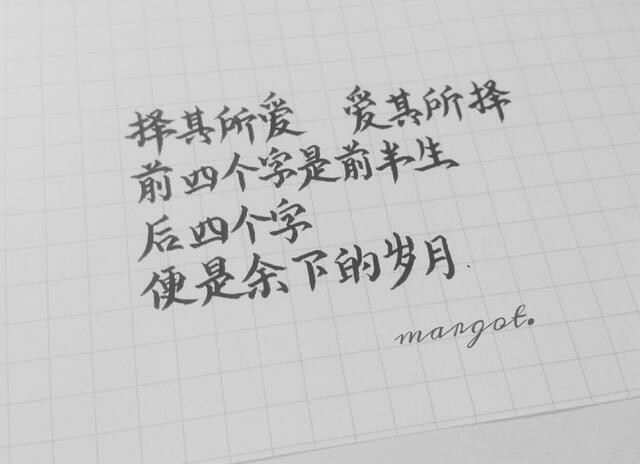 择其所爱 爱其所择
前四个字是前半生
后四个字
便是余下的岁月.
margot.